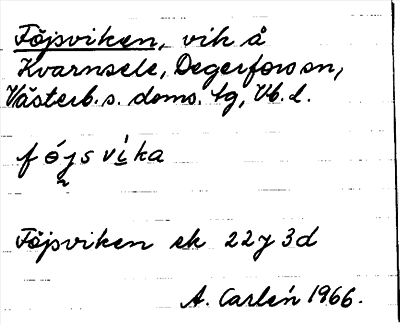 Föjsviken, vik å
Kvarnsele, Degerfors sn,
Västerb. s. doms. tg, Vb. l.
fójsvika
Föjsviken ek 22J 3d
A. Carlén 1966.